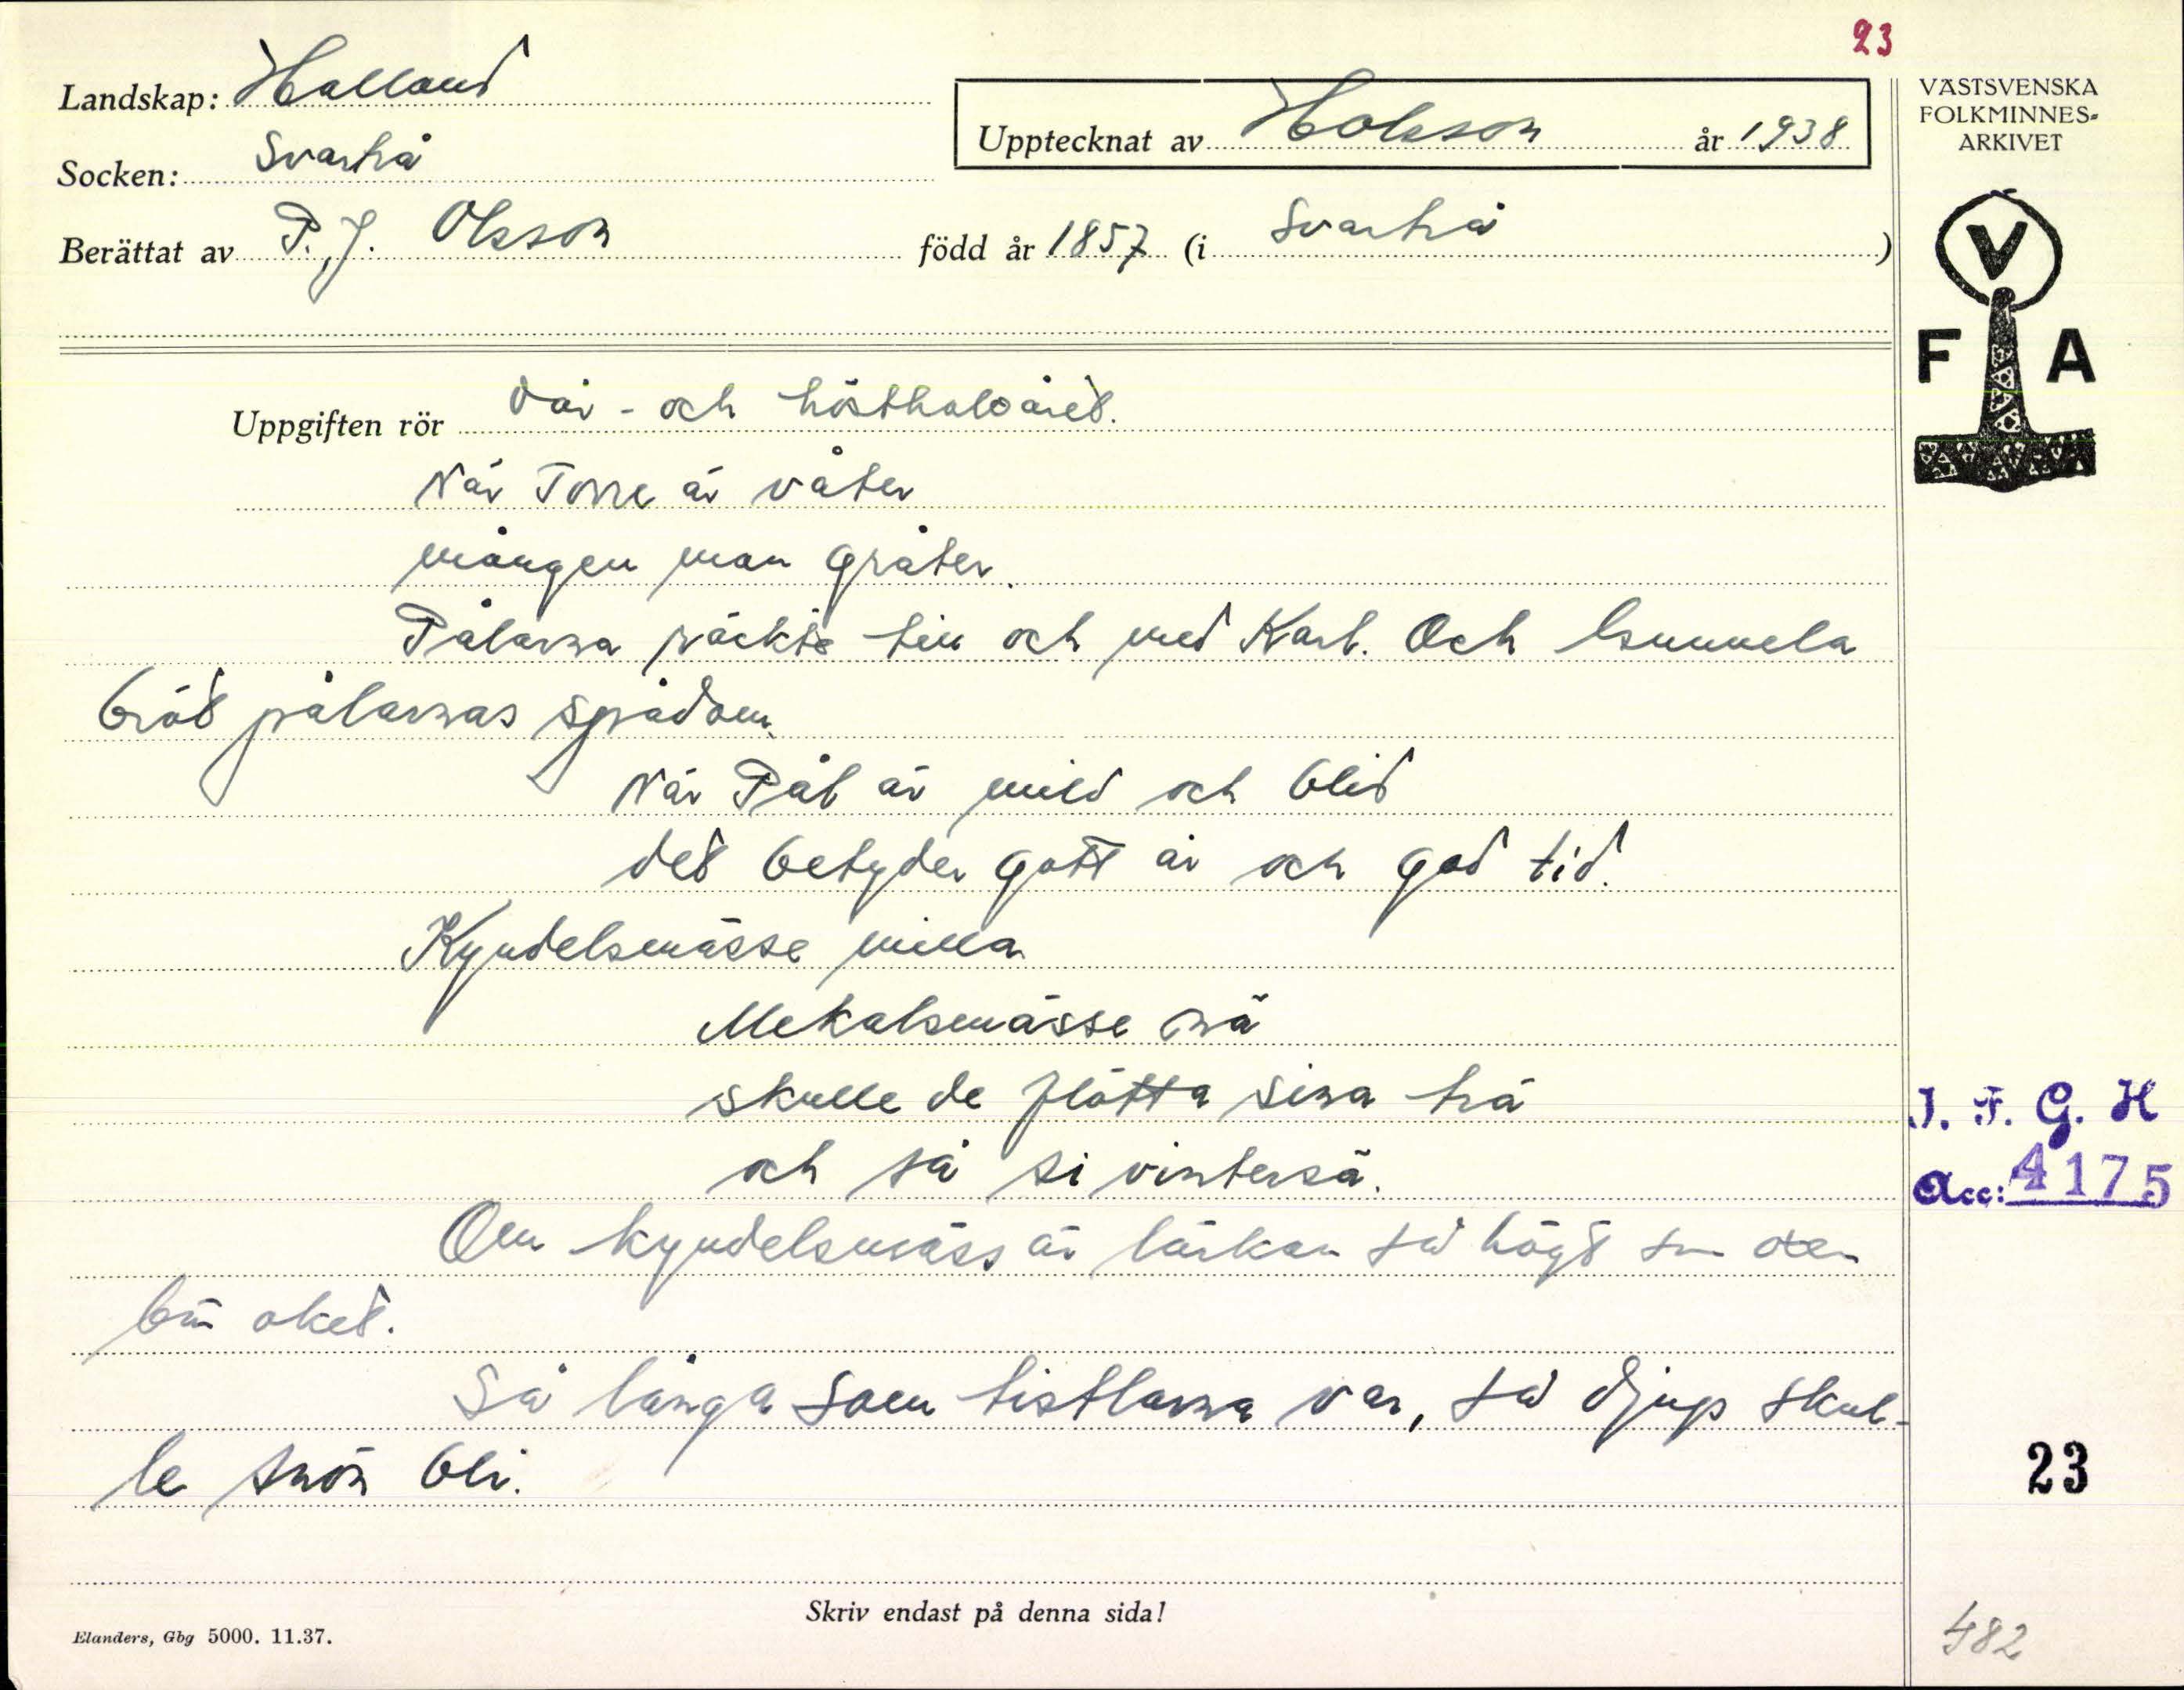 23
Landskap: Halland
Upptecknat av Holsson år 1938
VÄSTSVENSKA
FOLKMINNES-
ARKIVET
Socken: Svartrå
Berättat av P. J. Olsson född år 1857 (i Svartrå)
V
F A
Uppgiften rör Vår- och hösthalvåret.
När Torre är våter
mången man gråter.
Pålarna räckte till och med Karl. Och Gunnela
bröt pålarnas spådom.
När Pål är mild och blid
det betyder gott år och god tid.
Kyndelsmässe milla
Mekalsmässe nä
skulle de flötta sina trä
och så si vintersä.
J. F. G. H
Acc: 4175
Om kyndelsmäss är lärkan så högt som oxen
bär oket.
Så långa som tistlarna var, så djup skul-
le snön bli.
23
Skriv endast på denna sida!
Elanders, Gbg 5000. 11.37.
482